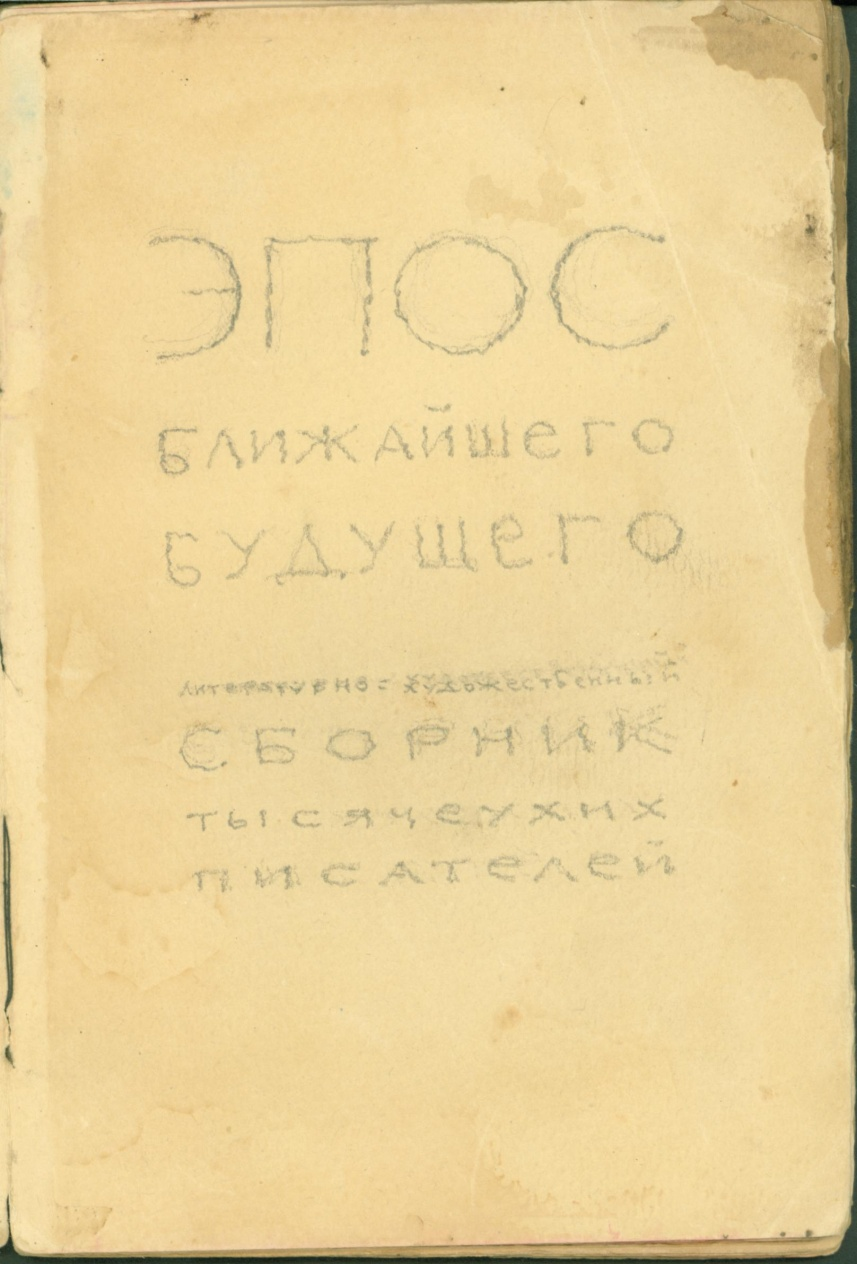 ЭПОС
БЛИЖАЙШЕГО
БУДУЩЕГО
ЛИТЕРАТУРНО = ХУДОЖЕСТВЕННЫЙ
СБОРНИК
ТЫСЯЧЕУХИХ
ПИСАТЕЛЕЙ